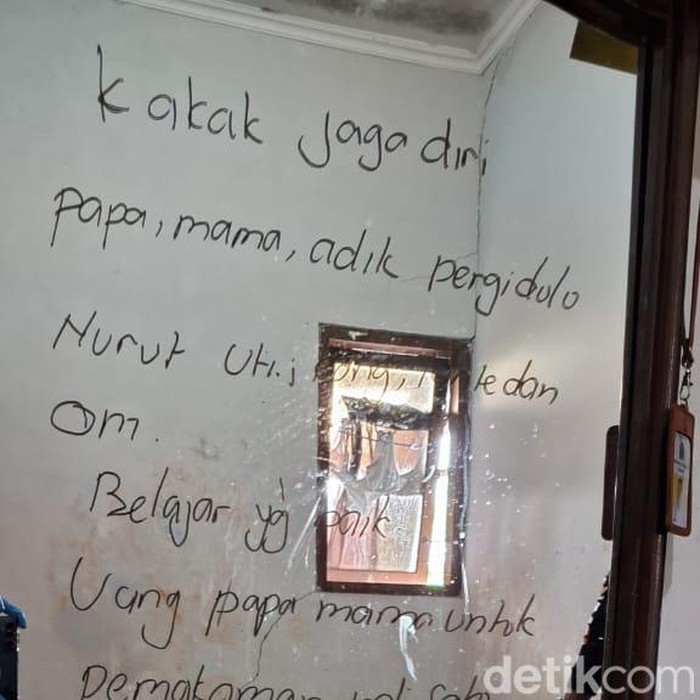 Kakak jaga diri
papa, mama, adik pergi dulo
Nurut Uti, kong, tante dan
Om.
Belajar yg baik
Uang papa mama untuk
Pemakaman
detikcom